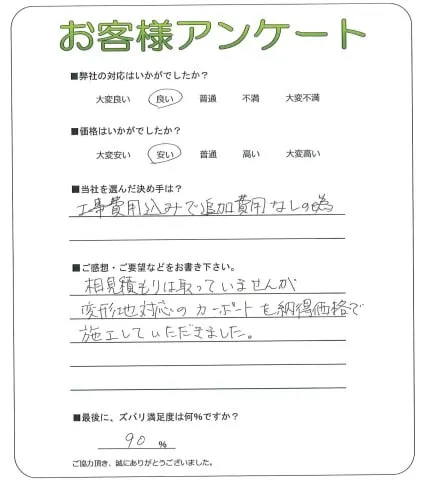 お客様アンケート
■弊社の対応はいかがでしたか?
大変良い 良い 普通 不満 大変不満
■価格はいかがでしたか?
大変安い 安い 普通 高い 大変高い
■当社を選んだ決め手は?
工事費用込みで追加費用なしの為
■ご感想・ご要望などをお書き下さい。
相見積もりは取っていませんが
変形地対応のカーポートを納得価格で
施工していただきました。
■最後に、ズバリ満足度は何%ですか?
90 %
ご協力頂き、誠にありがとうございました。